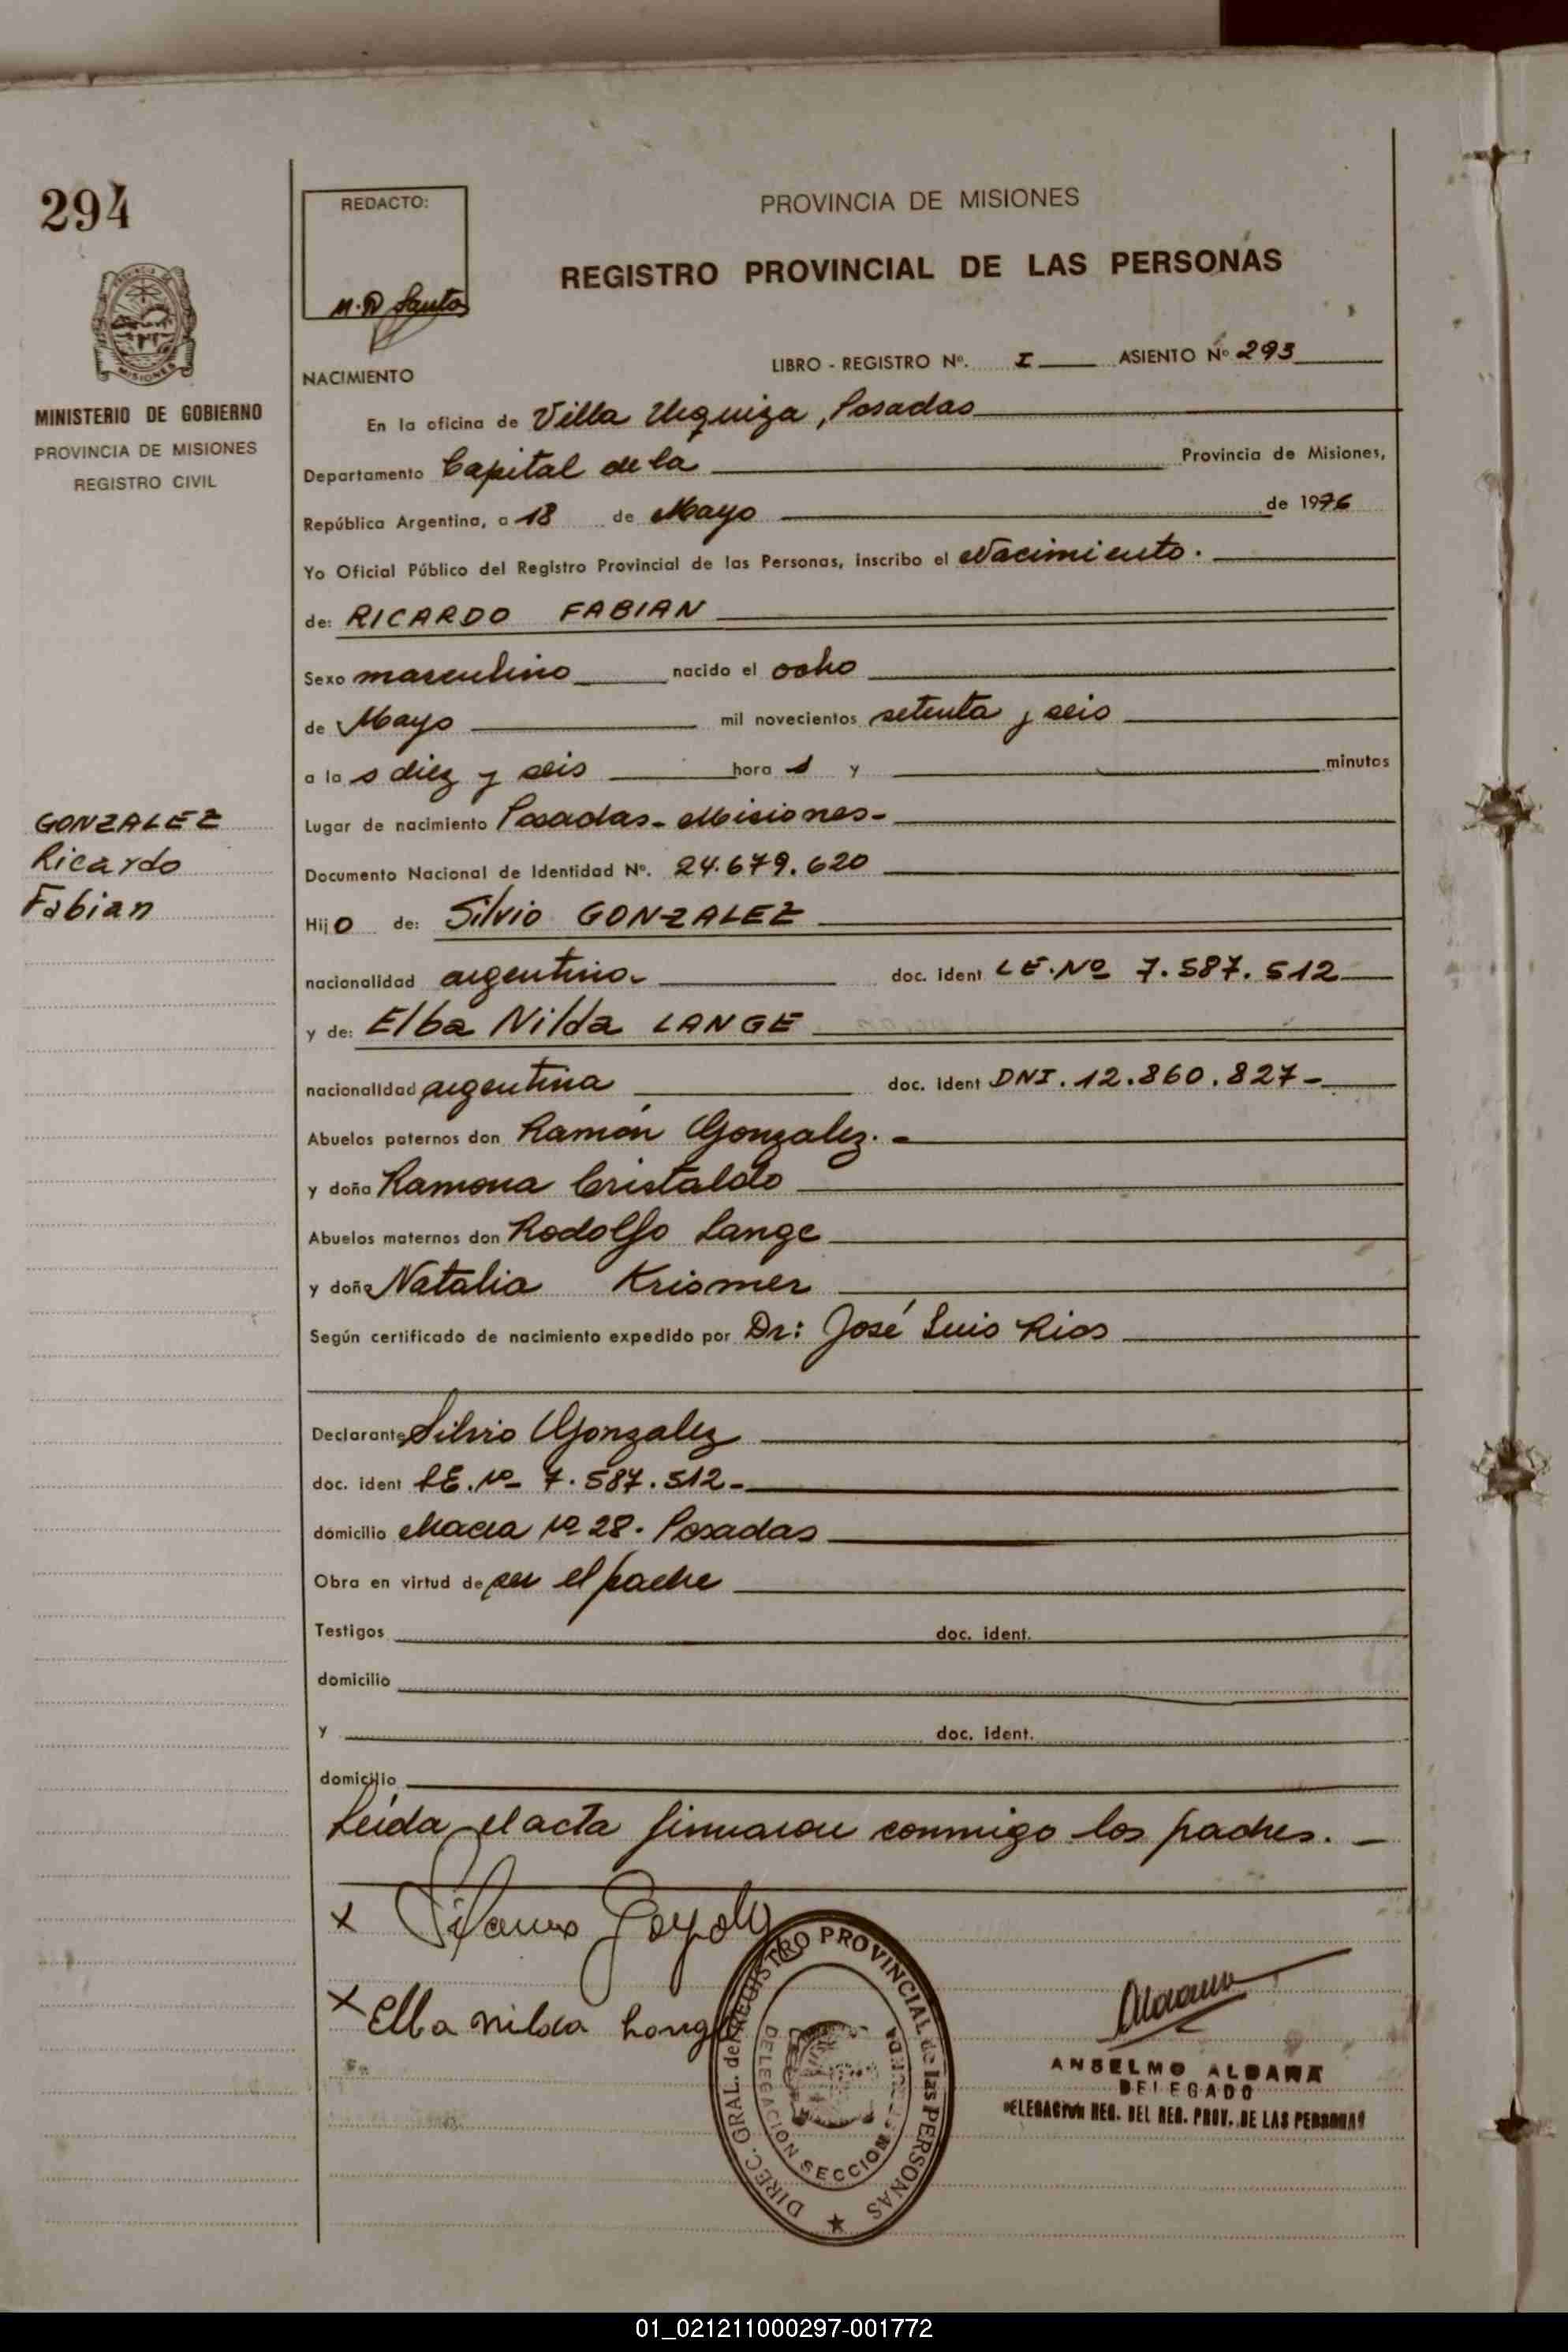 294
REDACTO:
M. R Santos
PROVINCIA DE MISIONES
REGISTRO PROVINCIAL DE LAS PERSONAS
PROVINCIA DE
MISIONES
MINISTERIO DE GOBIERNO
PROVINCIA DE MISIONES
REGISTRO CIVIL
NACIMIENTO
LIBRO - REGISTRO Nº. I ASIENTO Nº 293
En la oficina de Villa Urquiza, Posadas
Departamento Capital de la Provincia de Misiones,
República Argentina, a 18 de Mayo de 1976
Yo Oficial Público del Registro Provincial de las Personas, inscribo el Nacimiento.
de: RICARDO FABIAN
Sexo masculino nacido el ocho
de Mayo mil novecientos setenta y seis
a la s diez y seis hora s y minutos
GONZALEZ
Ricardo
Fabian
Lugar de nacimiento Posadas - Misiones -
Documento Nacional de Identidad Nº. 24.679.620
Hijo de: Silvio GONZALEZ
nacionalidad argentino - doc. ident LE. Nº 7.587.512
y de: Elba Nilda LANGE
nacionalidad argentina doc. ident DNI. 12.860.827 -
Abuelos paternos don Ramón Gonzalez. -
y doña Ramona Cristaldo
Abuelos maternos don Rodolfo Lange
y doña Natalia Krismer
Según certificado de nacimiento expedido por Dr: José Luis Rios
Declarante Silvio Gonzalez
doc. ident LE. Nº 7.587.512 -
domicilio Chacra Nº 28 - Posadas
Obra en virtud de ser el padre
Testigos doc. ident.
domicilio
y doc. ident.
domicilio
Leída el acta firmaron conmigo los padres. -
x
x Elba nilda Lange
DIREC. GRAL. del REGISTRO PROVINCIAL de las PERSONAS
DELEGACIÓN SECCION
ANSELMO ALDANA
DELEGADO
DELEGACION REG. DEL REG. PROV. DE LAS PERSONAS
01_021211000297-001772